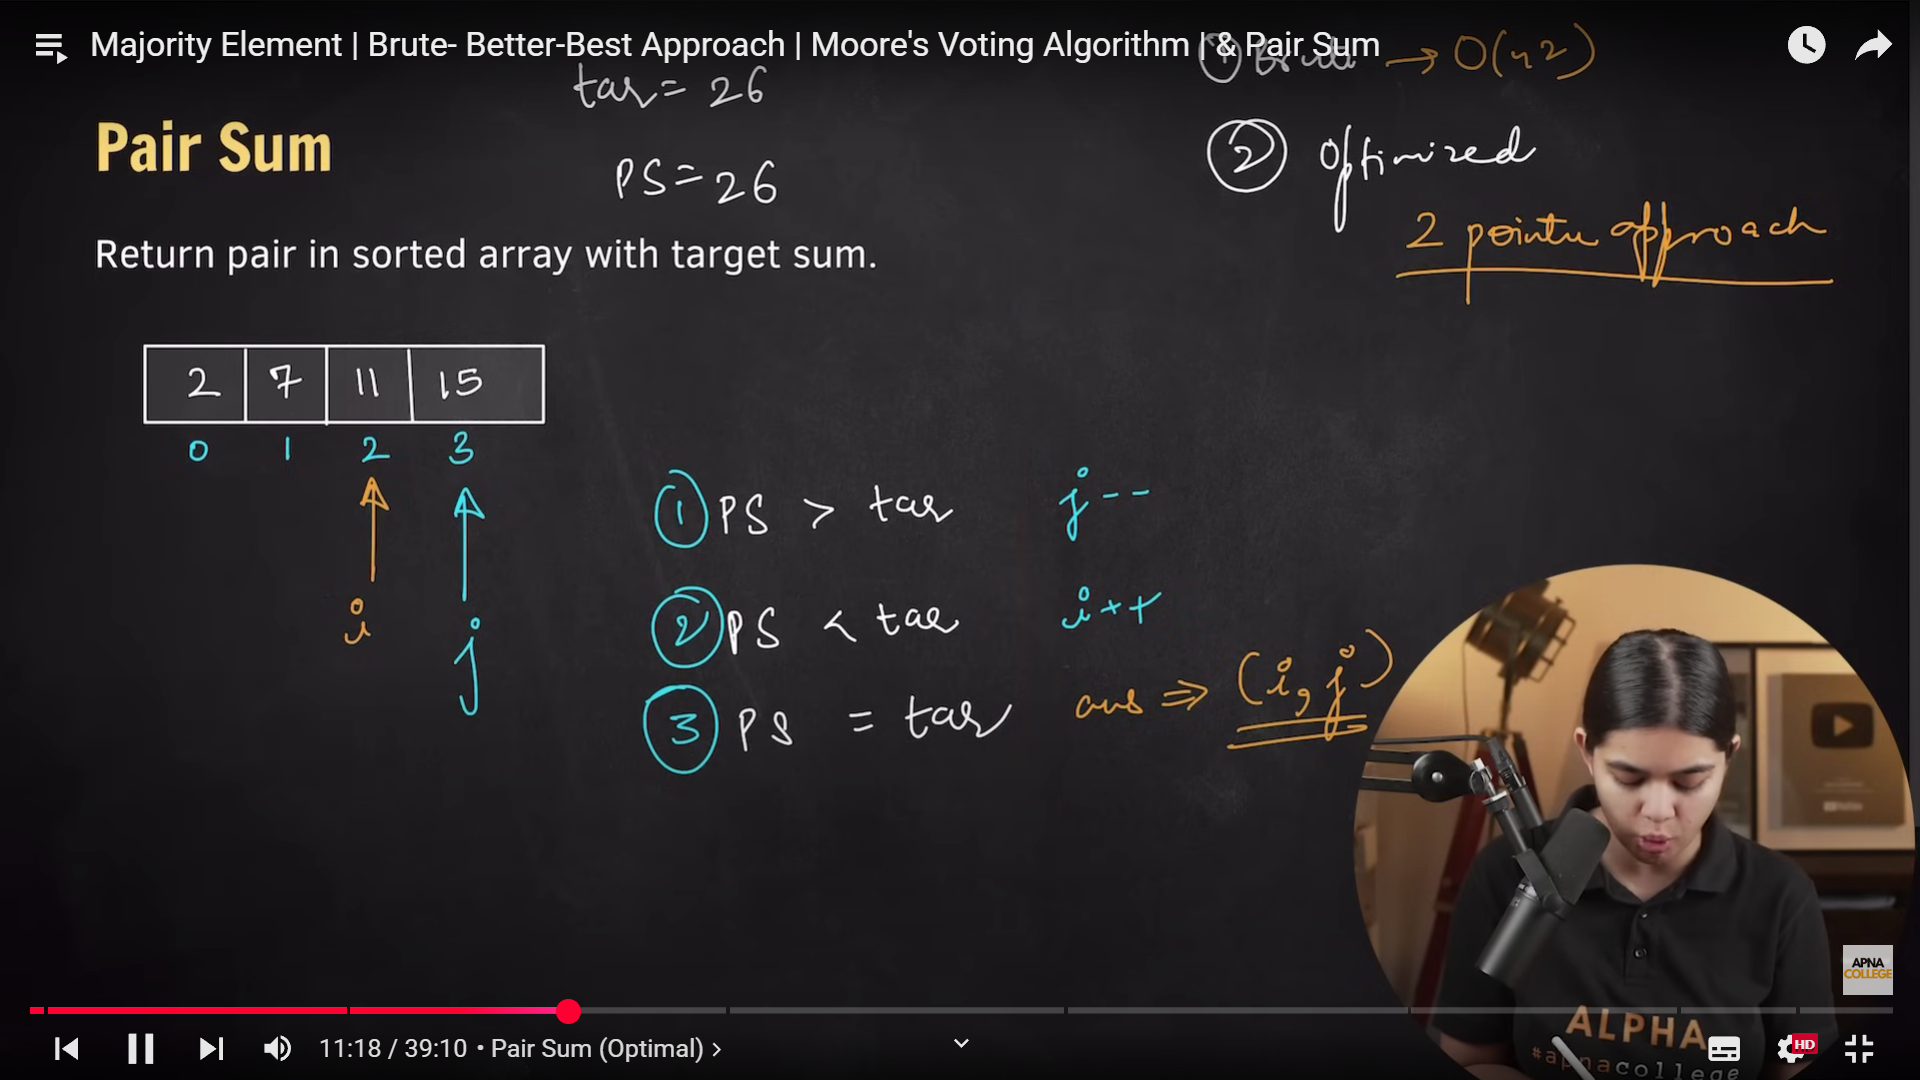 Majority Element | Brute- Better-Best Approach | Moore's Voting Algorithm | & Pair Sum
→ O(n2)
tar = 26
Pair Sum
PS = 26
② Optimized
2 pointer approach
Return pair in sorted array with target sum.
2 7 11 15
0 1 2 3
i
j
① PS > tar j--
② PS < tar i++
③ PS = tar ans ⇒ (i, j)
APNA
COLLEGE
ALPHA
#apnacollege
11:18 / 39:10 • Pair Sum (Optimal) >
HD